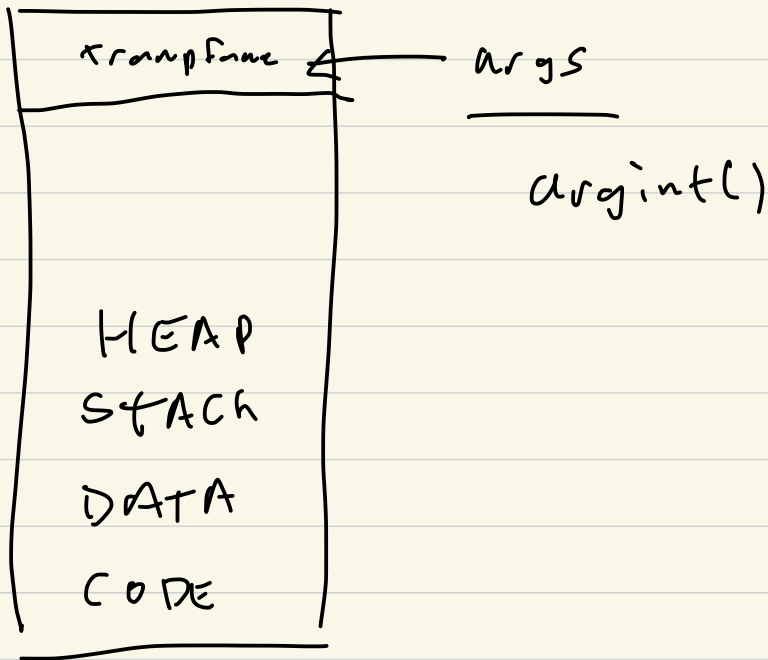 trampframe
args
argint()
HEAP
STACK
DATA
CODE